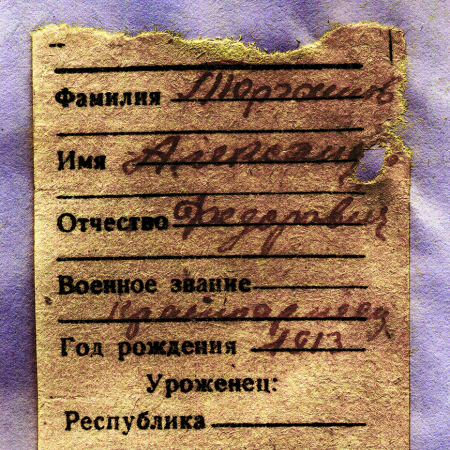 Фамилия
Имя Александ
Отчество Федорович
Военное звание
Красноармеец
Год рождения 1913
Уроженец:
Республика